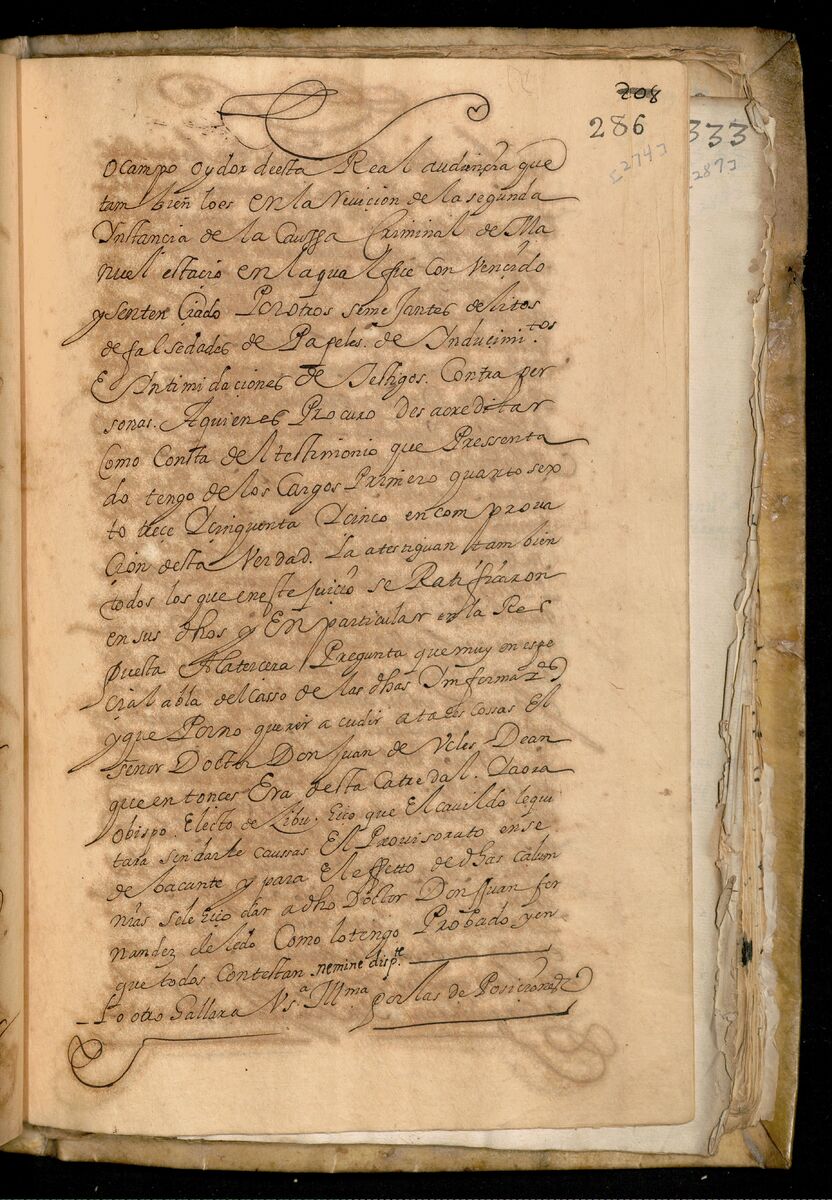 208
286
333
[274]
[287]
ocampo oydor deesta Real audiencia que
tam bien loes en la Revicion de la segunda
Ynstancia de la Caussa Criminal de Ma
nuel estacio en la qual fue Con Vencido
y senten Ciado Por otros seme Jantes delitos
de fal sedades de Papeles. de Ynducimi.tos
E Yntimidaciones de Testigos. Contra per
sonas. Aquienes Procuro des acreditar
Como Consta del testimonio que Pressenta
do tengo de los Cargos Primero quarto sex
to trece Ycinquenta Ycinco en com prova
cion desta Verdad. La atestiguan tambien
todos los que en este juicio se Ratificaron
en sus dhos y En particular en la Res
puesta Alatercera Pregunta que muy en espe
cial abla del casso de las dhas Informaz.es
y que Por no querer a cudir a tales cossas El
señor Doctor Don Juan de Veles, Dean
que entonces Era desta Catredal. Yaora
obispo. Electo de Zibu. hico que El cavildo lequi
tara sin darle caussas El Provisorato en se
de bacante y para El effetto de dhas calum
nias sele hico dar a dho Doctor Don Juan fer
nandez de ledo Como lo tengo Probado y en
que todos Contestan nemine disp.te
Lo otro hallara Vs.a Ill.ma por las de Posiciones de